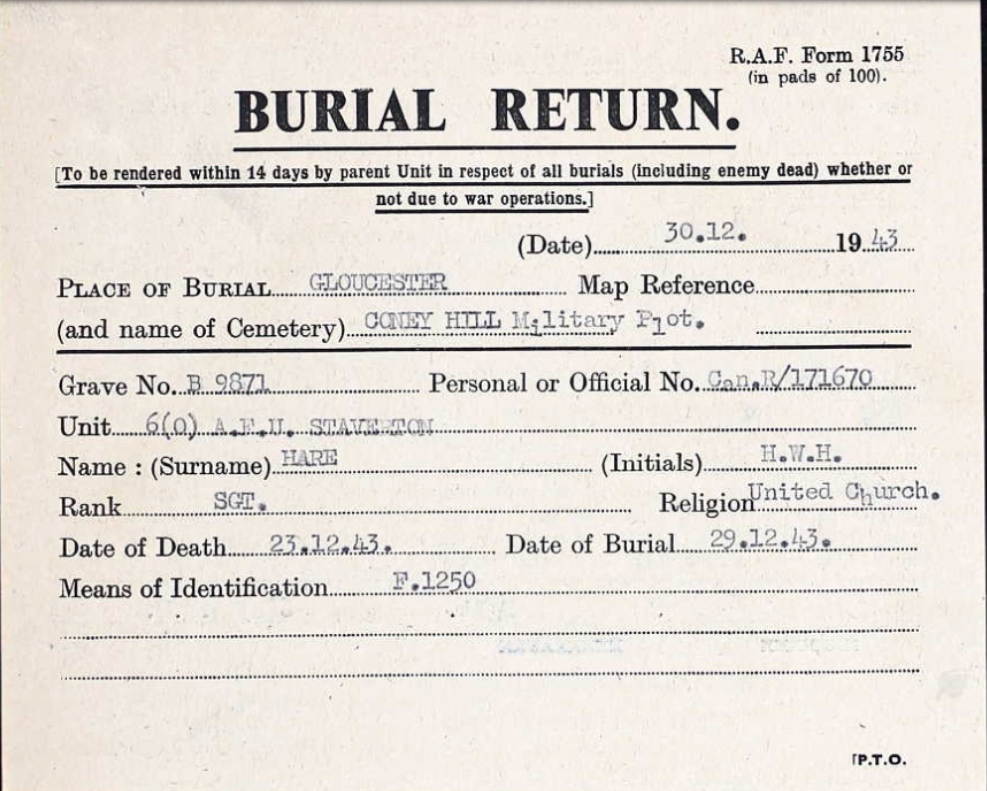 R.A.F. Form 1755
(in pads of 100).
BURIAL RETURN.
[To be rendered within 14 days by parent Unit in respect of all burials (including enemy dead) whether or
not due to war operations.]
(Date) 30.12. 1943
PLACE OF BURIAL GLOUCESTER Map Reference
(and name of Cemetery) CONEY HILL Military Plot.
Grave No. B 9871 Personal or Official No. Can.R/171670
Unit 6(O) A.F.U. STAVERTON
Name : (Surname) HARE (Initials) H.W.H.
Rank SGT. Religion United Church.
Date of Death 23.12.43. Date of Burial 29.12.43.
Means of Identification F.1250
[P.T.O.